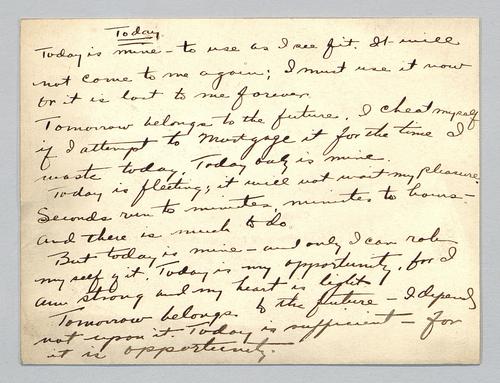 Today
Today is mine - to use as I see fit. It will
not come to me again; I must use it now
or it is lost to me forever.
Tomorrow belongs to the future. I cheat myself
if I attempt to mortgage it for the time I
waste today. Today only is mine.
Today is fleeting; it will not wait my pleasure.
Seconds run to minutes, minutes to hours -
and there is much to do.
But today is mine - and only I can rob
myself of it. Today is my opportunity, for I
am strong and my heart is light
Tomorrow belongs to the future - I depend
not upon it. Today is sufficient - for
it is opportunity.